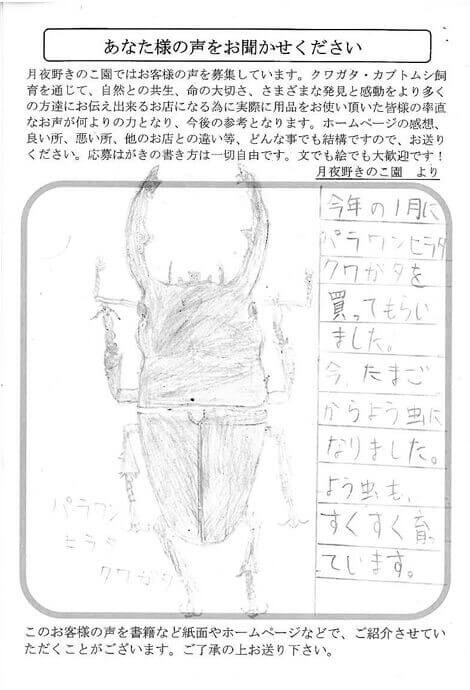 あなた様の声をお聞かせください
月夜野きのこ園ではお客様の声を募集しています。クワガタ・カブトムシ飼
育を通じて、自然との共生、命の大切さ、さまざまな発見と感動をより多く
の方達にお伝え出来るお店になる為に実際に用品をお使い頂いた皆様の率直
なお声が何よりの力となり、今後の参考となります。ホームページの感想、
良い所、悪い所、他のお店との違い等、どんな事でも結構ですので、お送り
ください。応募はがきの書き方は一切自由です。文でも絵でも大歓迎です！
月夜野きのこ園　より
今年の1月に
パラワンヒラタ
クワガタを
買ってもらい
ました。
今、たまご
からよう虫に
なりました。
よう虫も、
すくすく育っ
ています。
パラワン
ヒラタ
クワガタ
このお客様の声を書籍など紙面やホームページなどで、ご紹介させてい
ただくことがございます。ご了承の上お送り下さい。